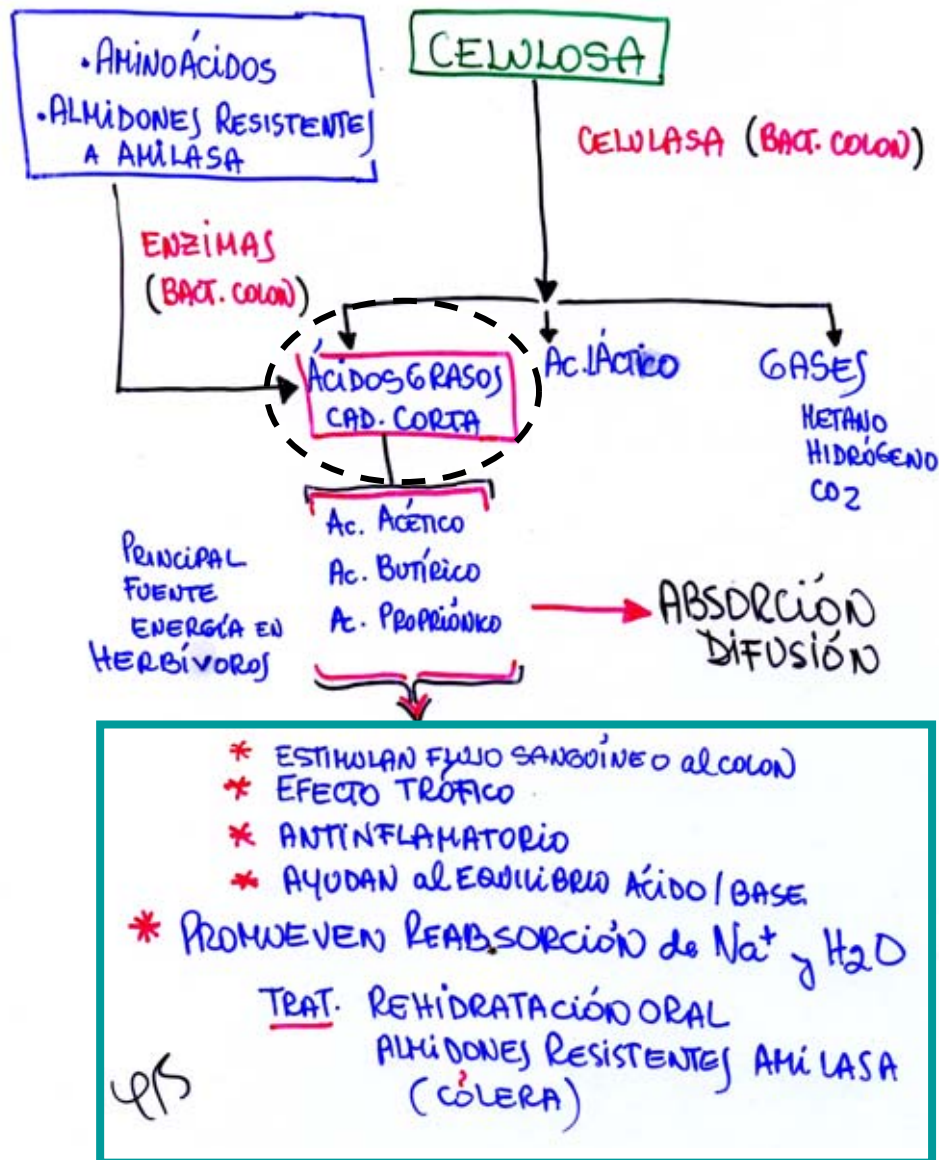 • AMINOÁCIDOS
• ALMIDONES RESISTENTES
A AMILASA
CELULOSA
CELULASA (BACT. COLON)
ENZIMAS
(BACT. COLON)
ÁCIDOS GRASOS
CAD. CORTA
Ac. LÁCTICO
GASES
METANO
HIDRÓGENO
CO2
PRINCIPAL
FUENTE
ENERGÍA EN
HERBÍVOROS
Ac. ACÉTICO
Ac. BUTÍRICO
Ac. PROPRIÓNICO
ABSORCIÓN
DIFUSIÓN
* ESTIMULAN FLUJO SANGUÍNEO al COLON
* EFECTO TRÓFICO
* ANTINFLAMATORIO
* AYUDAN al EQUILIBRIO ÁCIDO / BASE
* PROMUEVEN REABSORCIÓN de Na+ y H2O
TRAT. REHIDRATACIÓN ORAL
ALMIDONES RESISTENTES AMILASA
(CÓLERA)